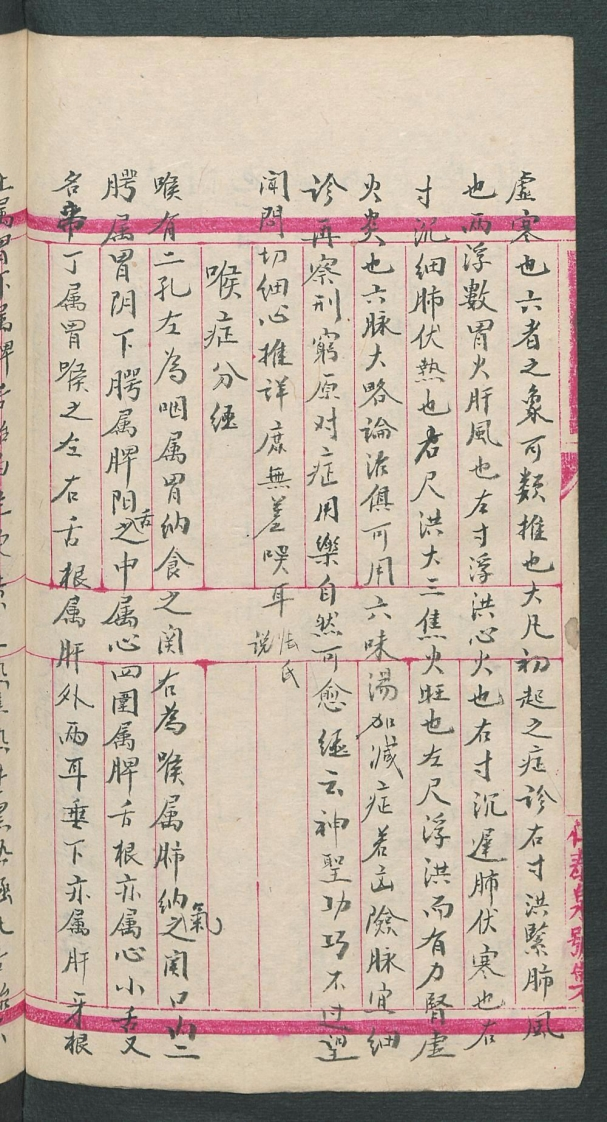 虛寒也六者之象可類推也大凡初起之症診右寸洪緊肺風
也两浮數胃火肝風也左寸浮洪心火也右寸沉遲肺伏寒也右
寸沉細肺伏熱也右尺洪大三焦火旺也左尺浮洪而有力腎虛
火炎也六脉大略論治俱可用六味湯加减症若凶險脉宜細
診再察刑窮原对症用藥自然可愈經云神聖功巧不过望
聞問切細心推詳庶無差悞耳
张氏
说
喉症分經
喉有二孔左為咽属胃纳食之関右為喉属肺纳氣之関口内二
腭属胃阴下腭属脾阳舌之中属心四圍属脾舌根亦属心小舌又
名帝丁属胃喉之左右舌根属肝外两耳垂下亦属肝牙根